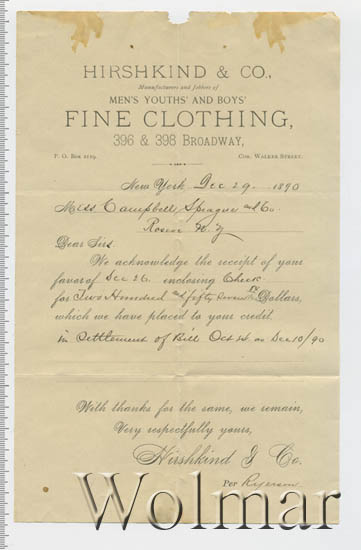 HIRSHKIND & CO.,
Manufacturers and Jobbers of
MEN'S YOUTHS' AND BOYS'
FINE CLOTHING,
396 & 398 BROADWAY,
P. O. Box 2119. Cor. Walker Street.
New York Dec 29 1890
Mess Campbell Sprague and Co
N. Y
Dear Sirs.
We acknowledge the receipt of your
favor of Dec 26. inclosing Check
for Two Hundred & fifty Seven Dollars,
which we have placed to your credit.
in Settlement of Bill Oct 14 as Dec 10/90
With thanks for the same, we remain,
Very respectfully yours,
Hirshkind & Co.
Per Ryerson
Wolmar